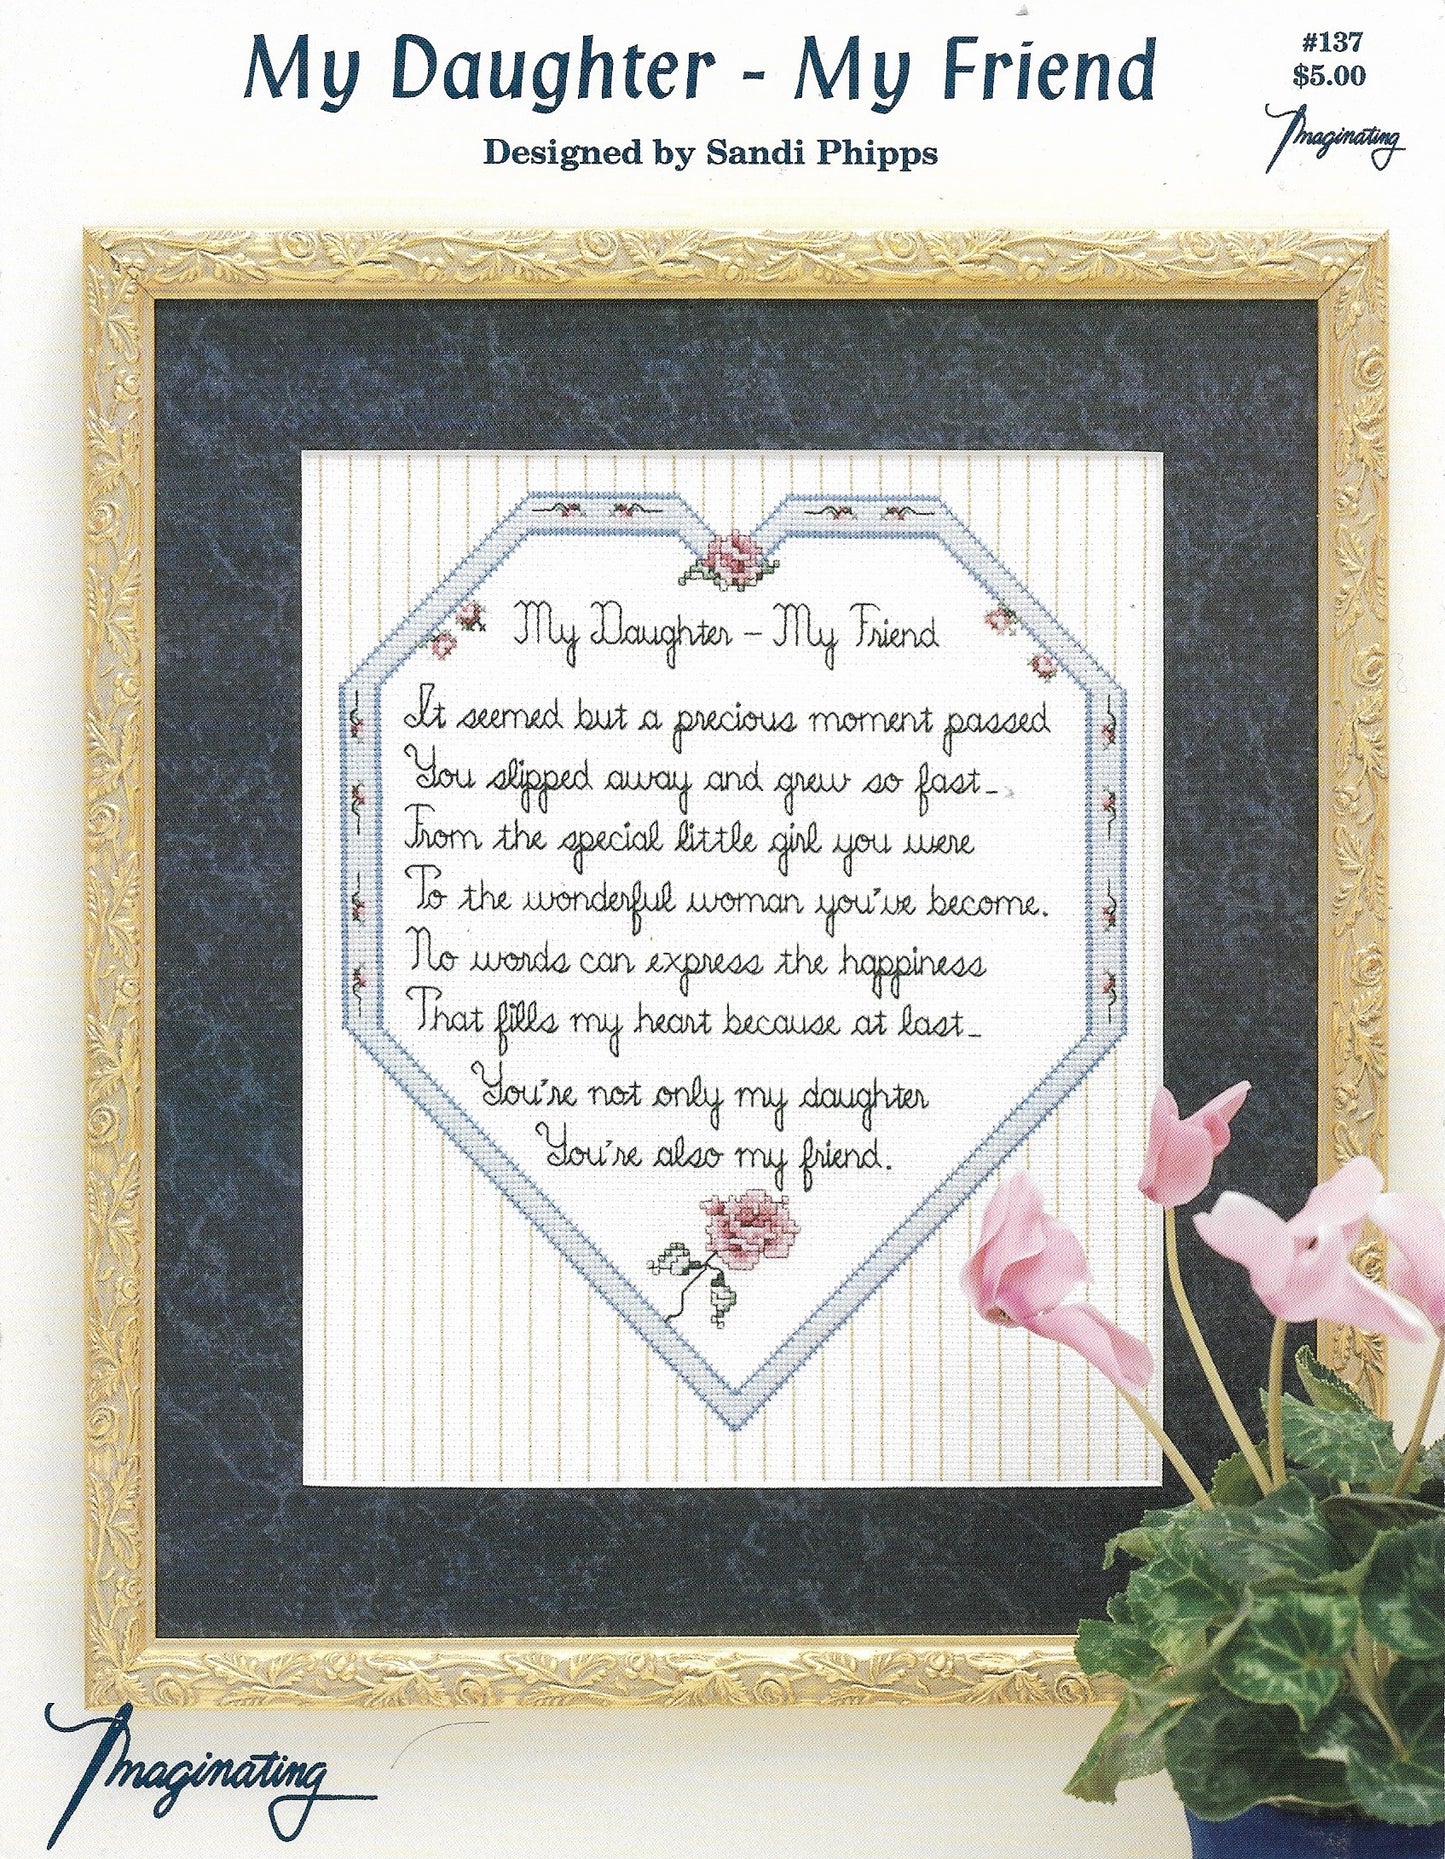 My Daughter - My Friend
#137
$5.00
Imaginating
Designed by Sandi Phipps
My Daughter – My Friend
It seemed but a precious moment passed
You slipped away and grew so fast_
From the special little girl you were
To the wonderful woman you've become.
No words can express the happiness
That fills my heart because at last_
You're not only my daughter
You're also my friend.
Imaginating